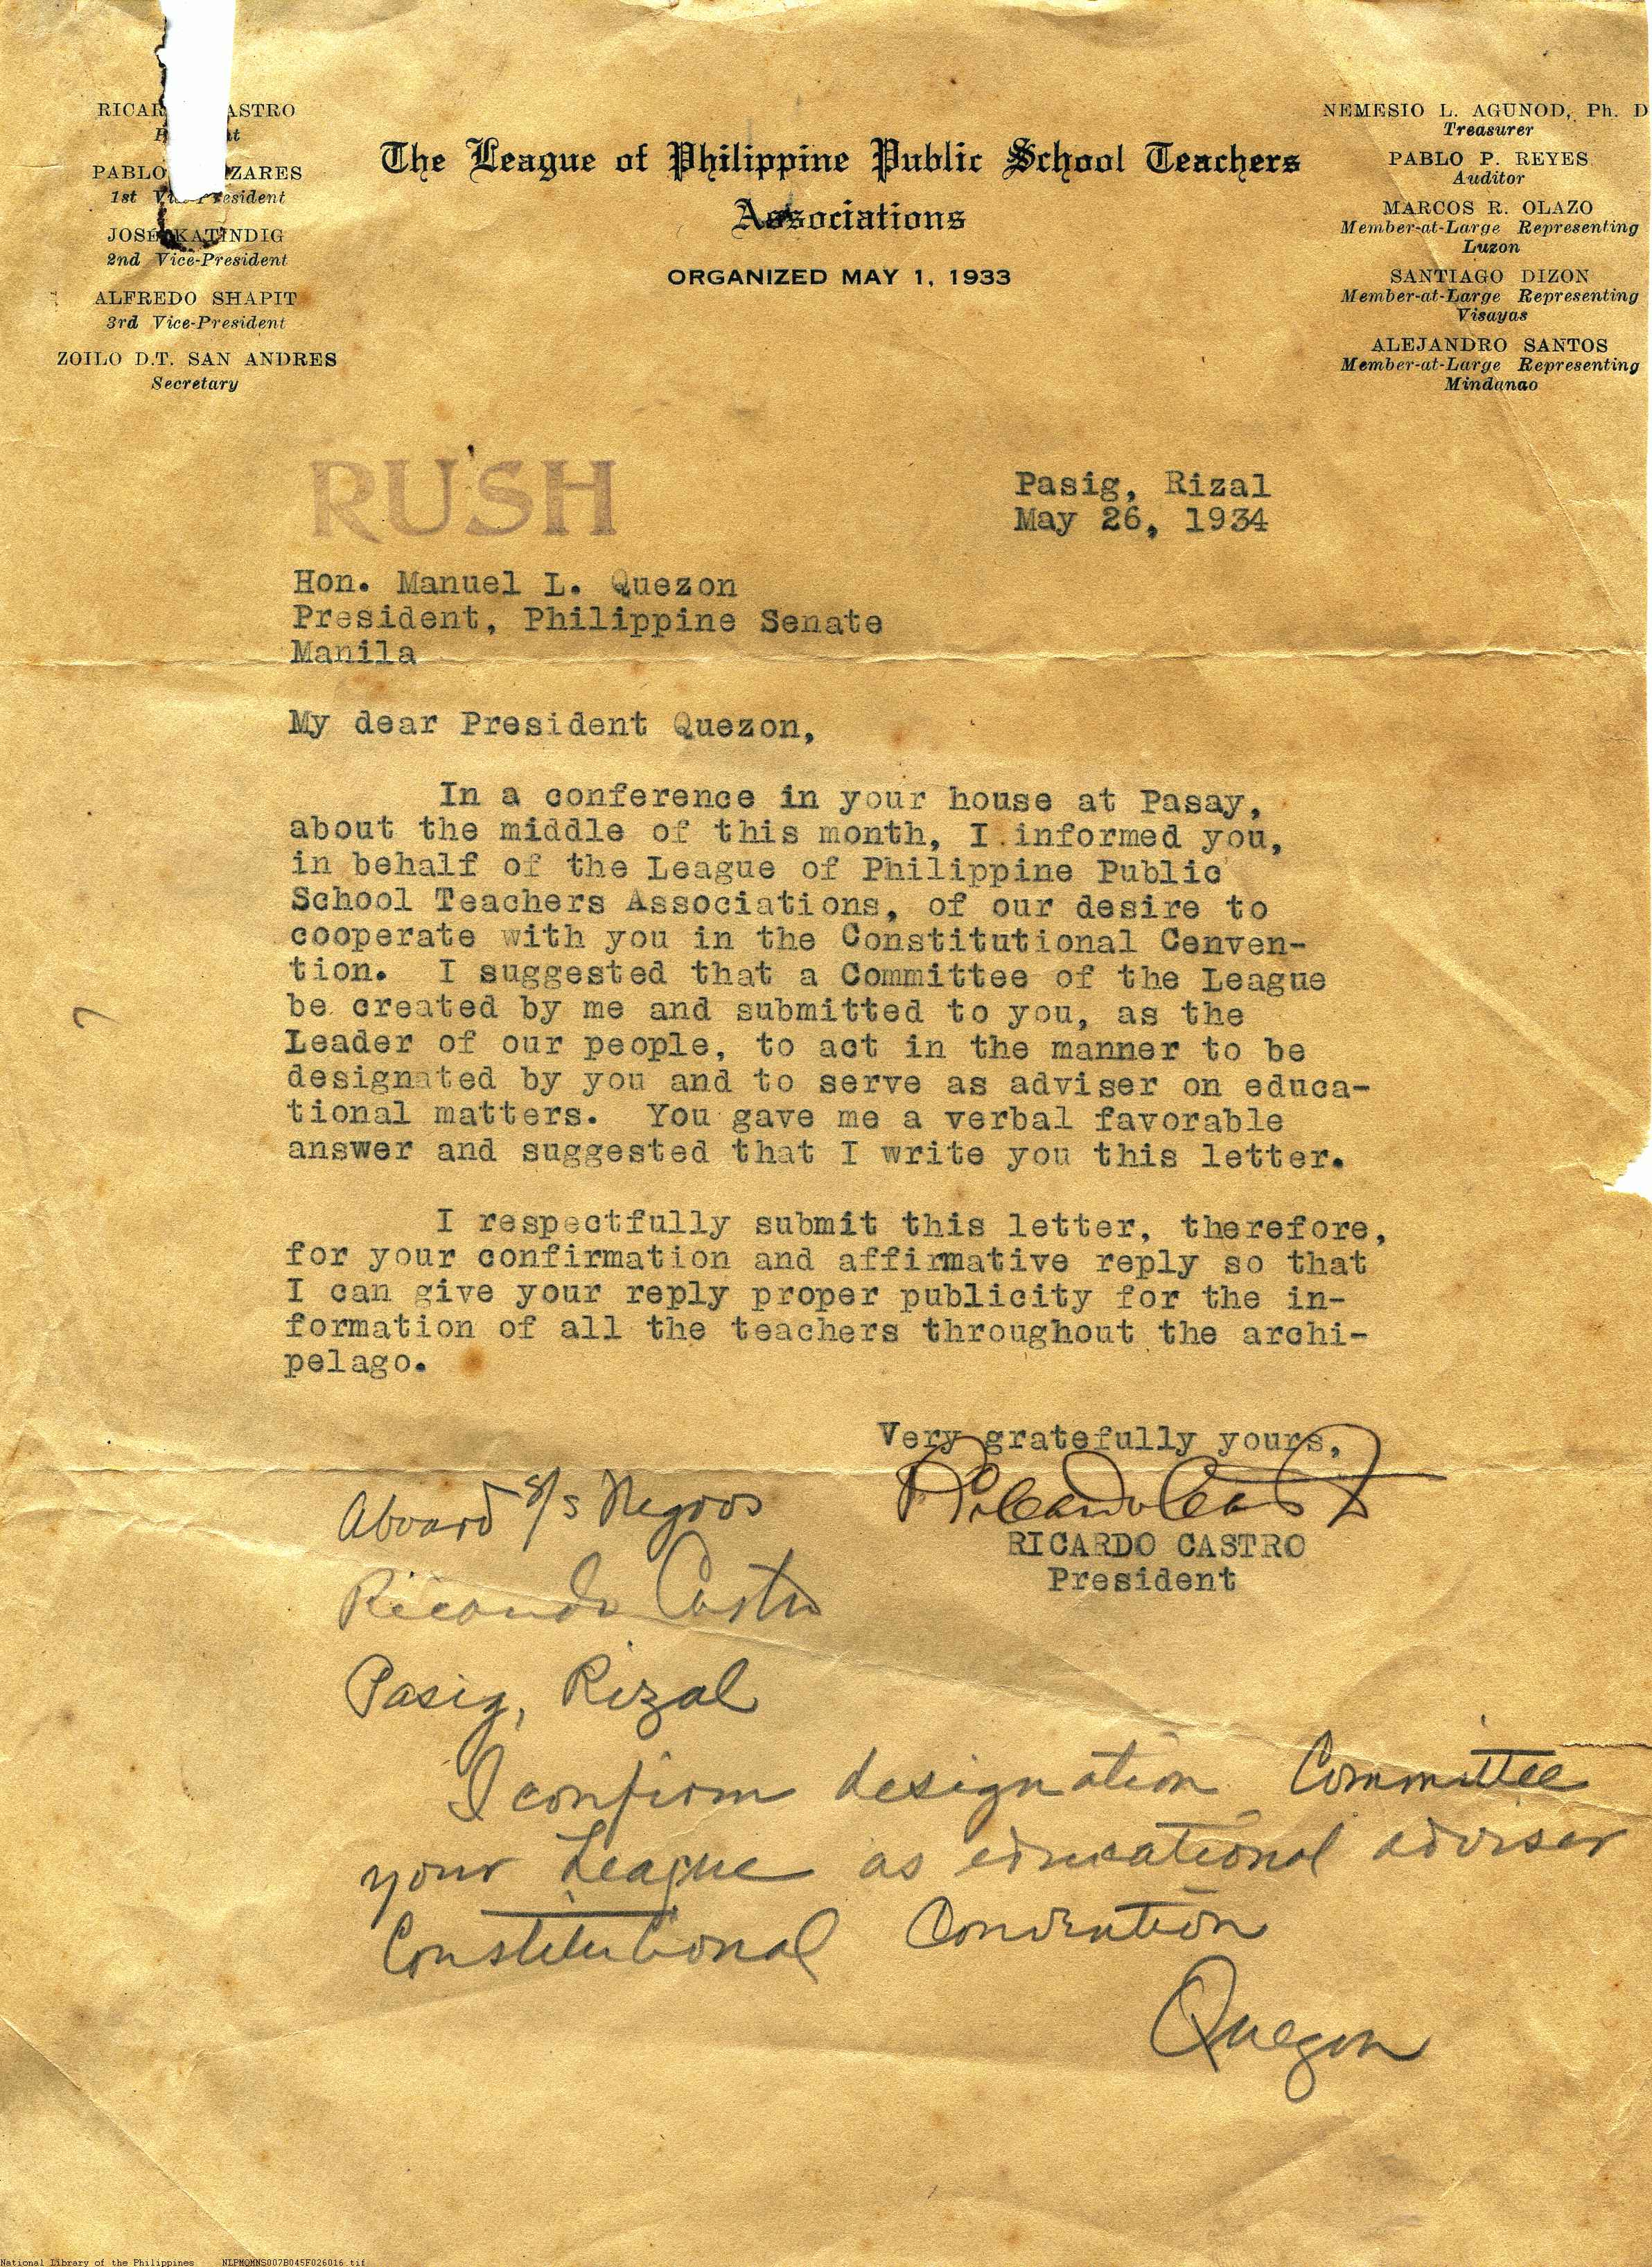 RICAR ASTRO
PABLO ZARES
1st Vice-President
JOSE KATINDIG
2nd Vice-President
ALFREDO SHAPIT
3rd Vice-President
ZOILO D.T. SAN ANDRES
Secretary
The League of Philippine Public School Teachers
Associations
ORGANIZED MAY 1, 1933
NEMESIO L. AGUNOD, Ph. D
Treasurer
PABLO P. REYES
Auditor
MARCOS R. OLAZO
Member-at-Large Representing
Luzon
SANTIAGO DIZON
Member-at-Large Representing
Visayas
ALEJANDRO SANTOS
Member-at-Large Representing
Mindanao
RUSH
Pasig, Rizal
May 26, 1934
Hon. Manuel L. Quezon
President, Philippine Senate
Manila
My dear President Quezon,
In a conference in your house at Pasay,
about the middle of this month, I informed you,
in behalf of the League of Philippine Public
School Teachers Associations, of our desire to
cooperate with you in the Constitutional Cenven-
tion. I suggested that a Committee of the League
be created by me and submitted to you, as the
Leader of our people, to act in the manner to be
designated by you and to serve as adviser on educa-
tional matters. You gave me a verbal favorable
answer and suggested that I write you this letter.
I respectfully submit this letter, therefore,
for your confirmation and affirmative reply so that
I can give your reply proper publicity for the in-
formation of all the teachers throughout the archi-
pelago.
Very gratefully yours,
Ricardo Castro
RICARDO CASTRO
President
Aboard S/S Negros
Ricardo Castro
Pasig, Rizal
I confirm designation Committee
your League as educational adviser
Constitutional Convention
Quezon
National Library of the Philippines NLPMQMNS007B045F026016.tif